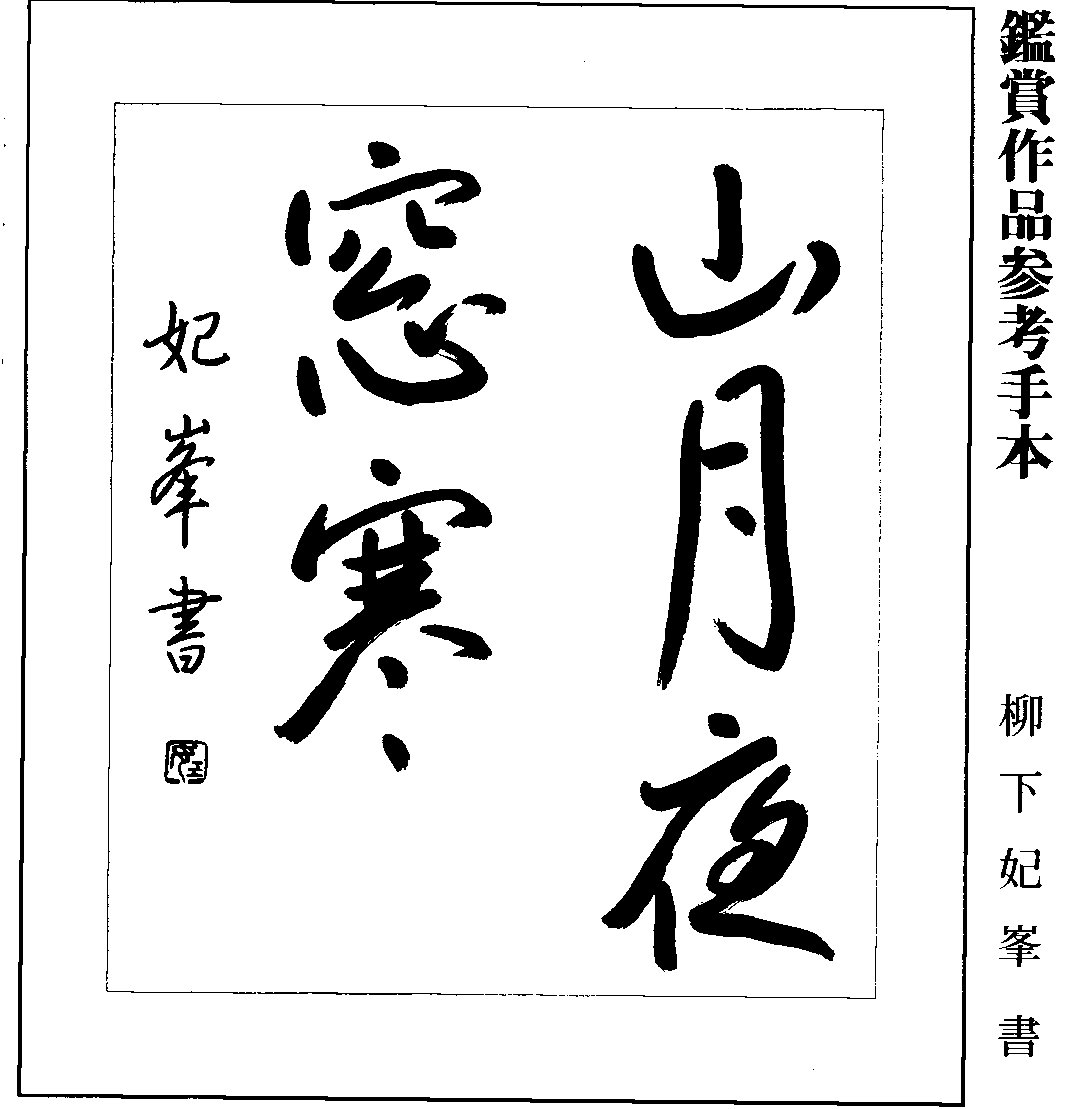 鑑賞作品参考手本 柳下妃峯書
山月夜
窓寒
妃峯書